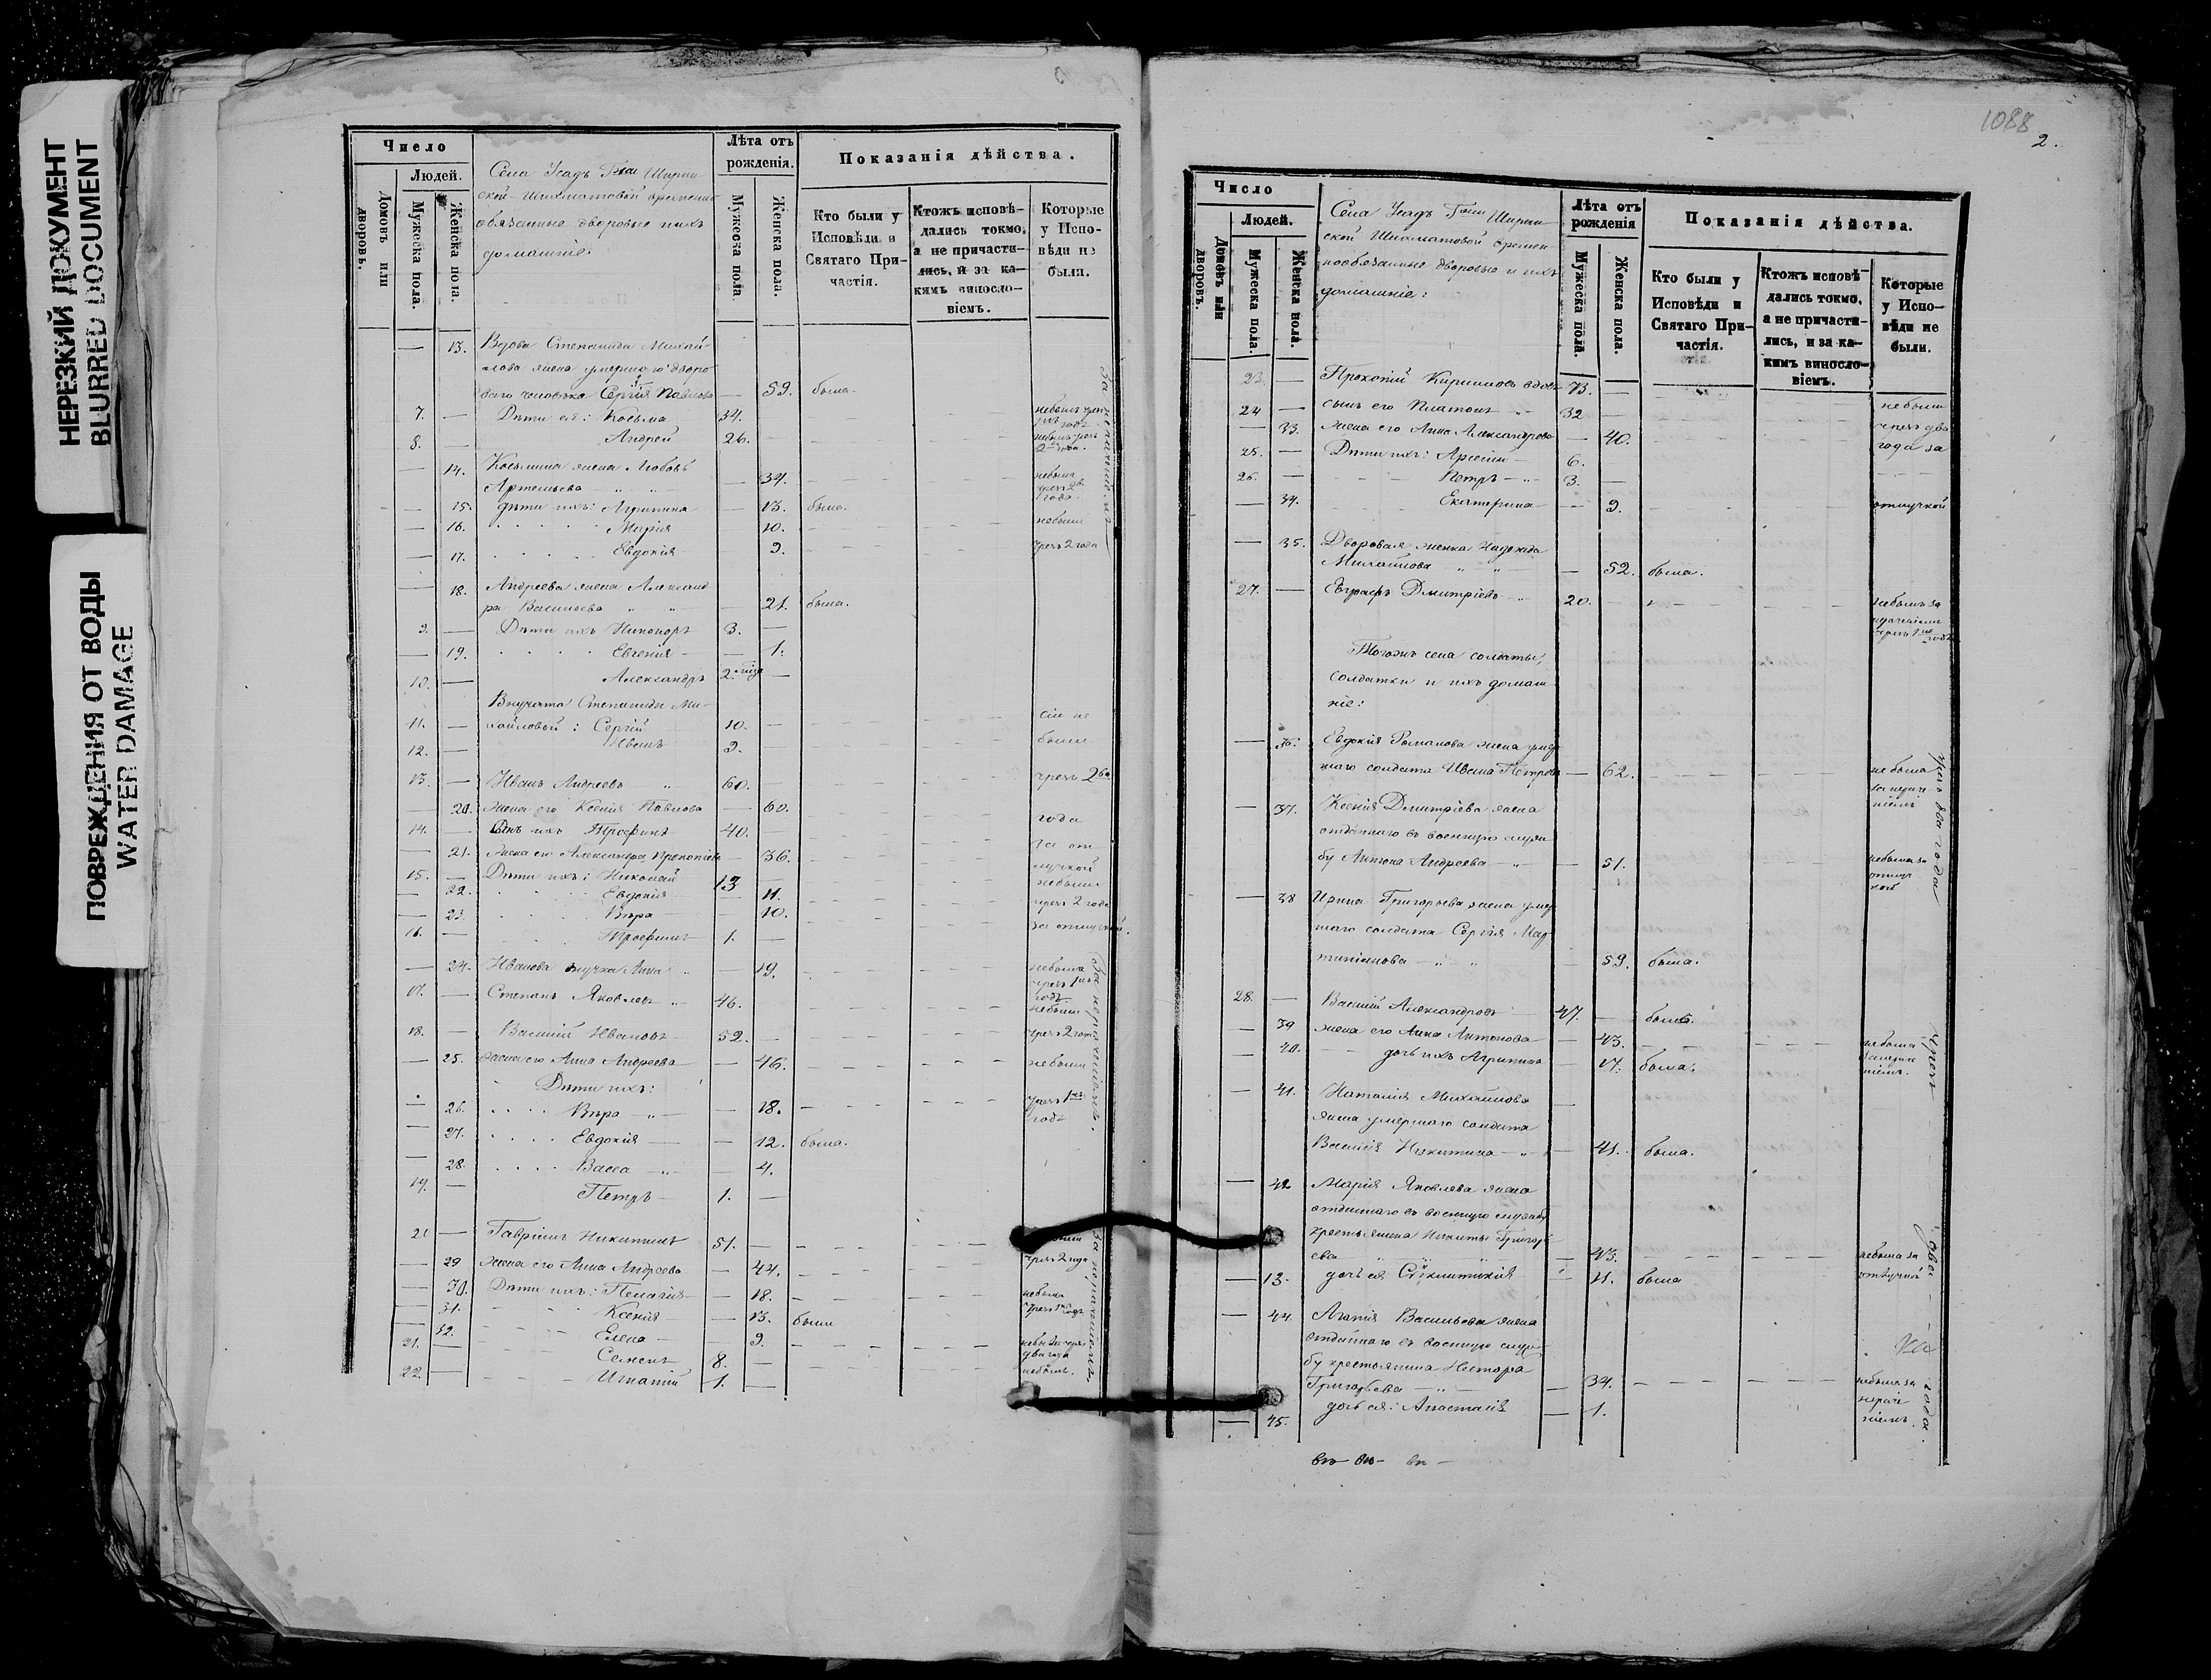 НЕРЕЗКИЙ ДОКУМЕНТ
BLURRED DOCUMENT
ПОВРЕЖДЕНИЯ ОТ ВОДЫ
WATER DAMAGE
Число
Людей.
Домовъ или дворовъ.
Мужеска пола.
Женска пола.
Села Усадъ Гжи Ширин
ской-Шихматовой временно
обязанные дворовые и ихъ
домашніе:
Лѣта отъ рожденія.
Мужеска пола
Женска пола.
Показанія дѣйства.
Кто были у Исповѣди и Святаго Причастія.
Ктожъ исповѣдались токмо, а не причастились, и за какимъ винословіемъ.
Которые у Исповѣди не были.
— 13. Вдова Степанида Михай-
лова жена умершаго дворо
ваго человѣка Сергія Павлова — 59. была.
7. — Дѣти ея: Косьма 34.
8. — Андрей 26.
— 14. Косьмина жена Любовь
Артемьева — 34.
— 15. дѣти ихъ: Агрипина — 13. была.
— 16. Марія 10. небыли
— 17. Евдокія 9. чрезъ 2 года
— 18. Андреева жена Александ
ра Васильева — 21. была.
9. — Дѣти ихъ Никаноръ 3. —
— 19. Евгенія — 1.
10. — Александръ 2.
Внучата Степаниды Ми-
11. — хайловой: Сергій 10. — сіи не
12. — Иванъ 9. были
13. — Иванъ Андреевъ 60. чрезъ 2
— 20. жена его Ксенія Павлова — 60. года
14. — Сынъ ихъ Трофимъ 40. за от
— 21. жена его Александра Прокопіева — 36. лучкой
15. — Дѣти ихъ: Николай 13 — небыли
— 22. Евдокія — 11. чрезъ 2 года
— 23. Вѣра — 10. за отлучкой.
16. — Трофимъ 1. —
— 24. Иванова внучка Анна — 19. небыла
чрезъ 1 годъ
17. — Степанъ Яковлевъ 46. небылъ
18. — Василій Ивановъ 52. чрезъ 2 года
— 25. жена его Анна Андреева — 46. небыли
Дѣти ихъ:
— 26. Вѣра — 18. чрезъ 1 годъ
— 27. Евдокія — 12. была.
— 28. Васса — 4.
19. — Петръ 1. —
20 — Гавріилъ Никитинъ 51. —
— 29 жена его Анна Андреева — 44. чрезъ 2 года
— 30. Дѣти ихъ: Пелагія — 18. небыла
— 31. Ксенія — 13. были
— 32. Елена — 9.
21. — Семенъ 8. —
22. — Игнатій 1. — небылъ.
За нераченіемъ.
1088
2.
Число
Людей.
Домовъ или дворовъ.
Мужеска пола.
Женска пола.
Села Усадъ Гжи Ширин
ской Шихматовой времен
нообязанные дворовые и ихъ
домашніе:
Лѣта отъ рожденія
Мужеска пола.
Женска пола.
Показанія дѣйства.
Кто были у Исповѣди и Святаго Причастія.
Ктожъ исповѣдались токмо, а не причастились, и за какимъ винословіемъ.
Которые у Исповѣди не были.
23. — Прокопій Кирилловъ вдовъ 73. —
24 — сынъ его Платонъ 32 — небыли
— 33. жена его Анна Александрова — 40. чрезъ два
25. — Дѣти ихъ: Арсеній 6. года за
26. — Петръ 3. —
— 34. Екатерина — 9. отлучкой
— 35. Дворовая женка Надежда
Михайлова — 52. была.
27. — Евграфъ Дмитріевъ 20. — небылъ за
Тогожъ села солдаты,
солдатки и ихъ домаш
ніе:
— 36. Евдокія Романова жена умер
шаго солдата Ивана Петрова — 62. небыла
за нераче
ніемъ
— 37. Ксенія Дмитріева жена
отданнаго въ военную служ
бу Антона Андреева — 51. небыла за
отлуч
кой
— 38 Ирина Григорьева жена умер
шаго солдата Сергія Мар
тиніанова — 59. была.
28. — Василій Александровъ 47. — былъ.
— 39 жена его Анна Антонова — 43. небыла
— 40. дочь ихъ Агрипина — 17. была.
— 41. Наталія Михайлова —
жена умершаго солдата
Василія Никитина — 41. была.
— 42 Марія Яковлева жена
отданнаго въ военную службу
крестьянина Никиты Григорь
ева — 43. небыла за
— 43. дочь ея Сѵнклитикія — 11. была отлучкой
— 44. Агапія Васильева жена
отданнаго въ военную служ
бу крестьянина Нестора
Григорьева — 34. небыла за
— 45. дочь ея: Анастасія — 1. нераче
ніемъ.
чрезъ два года